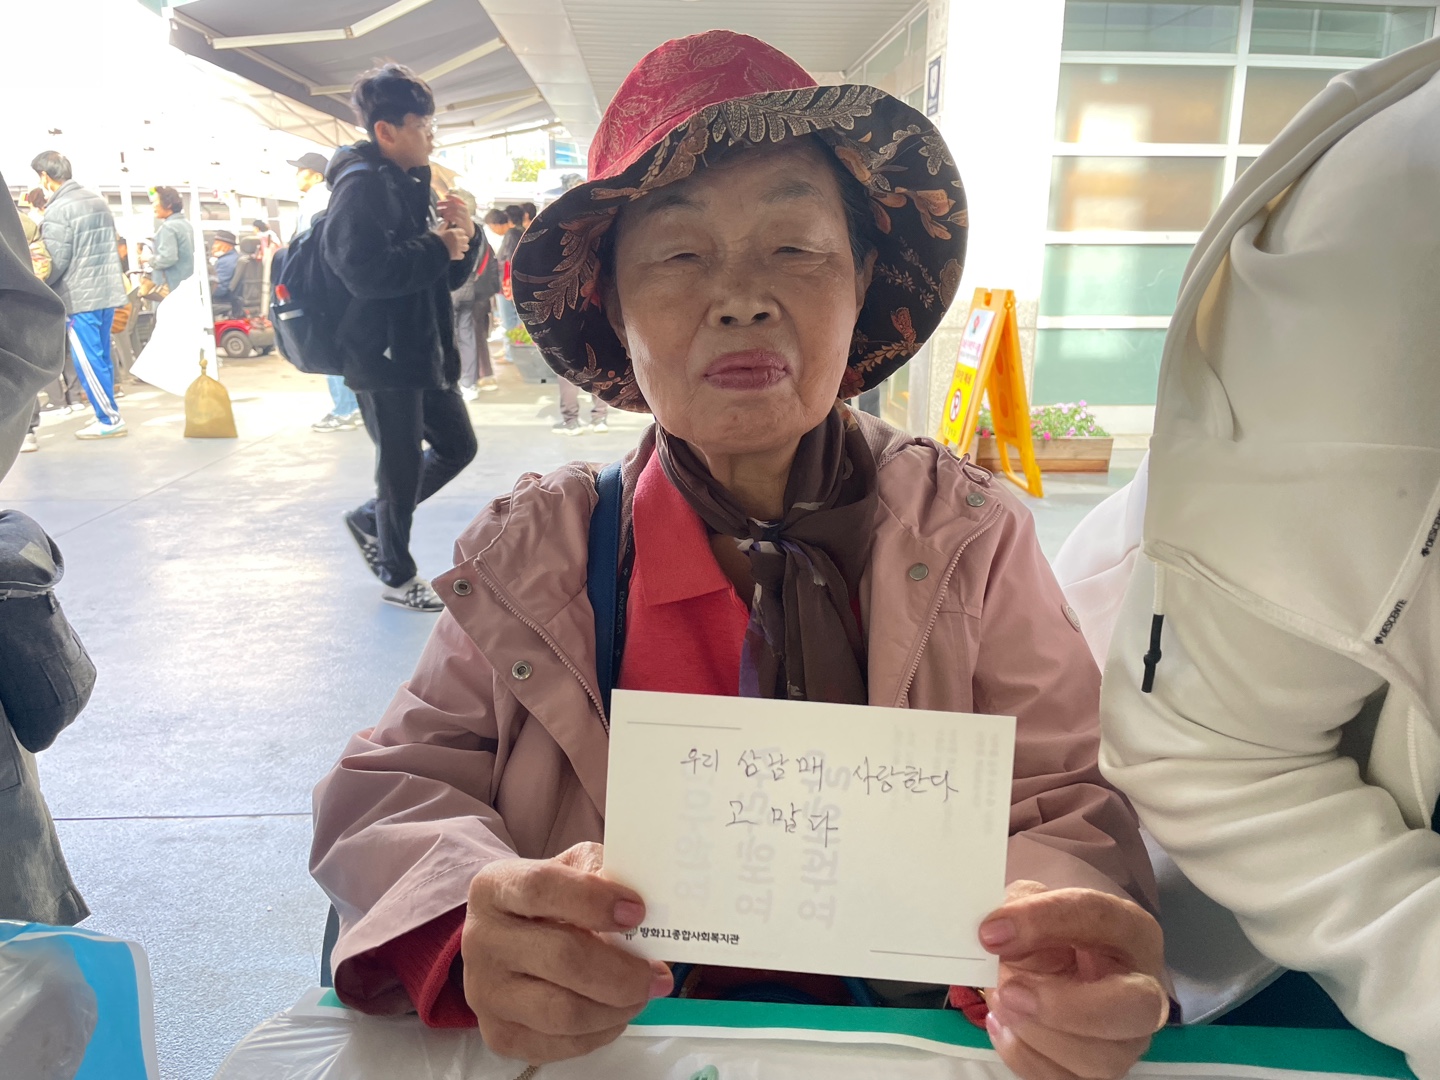 우리 삼남매 사랑한다
고 맙다
방화11종합사회복지관
ENZACTA
DESCENTE
DESCENTE